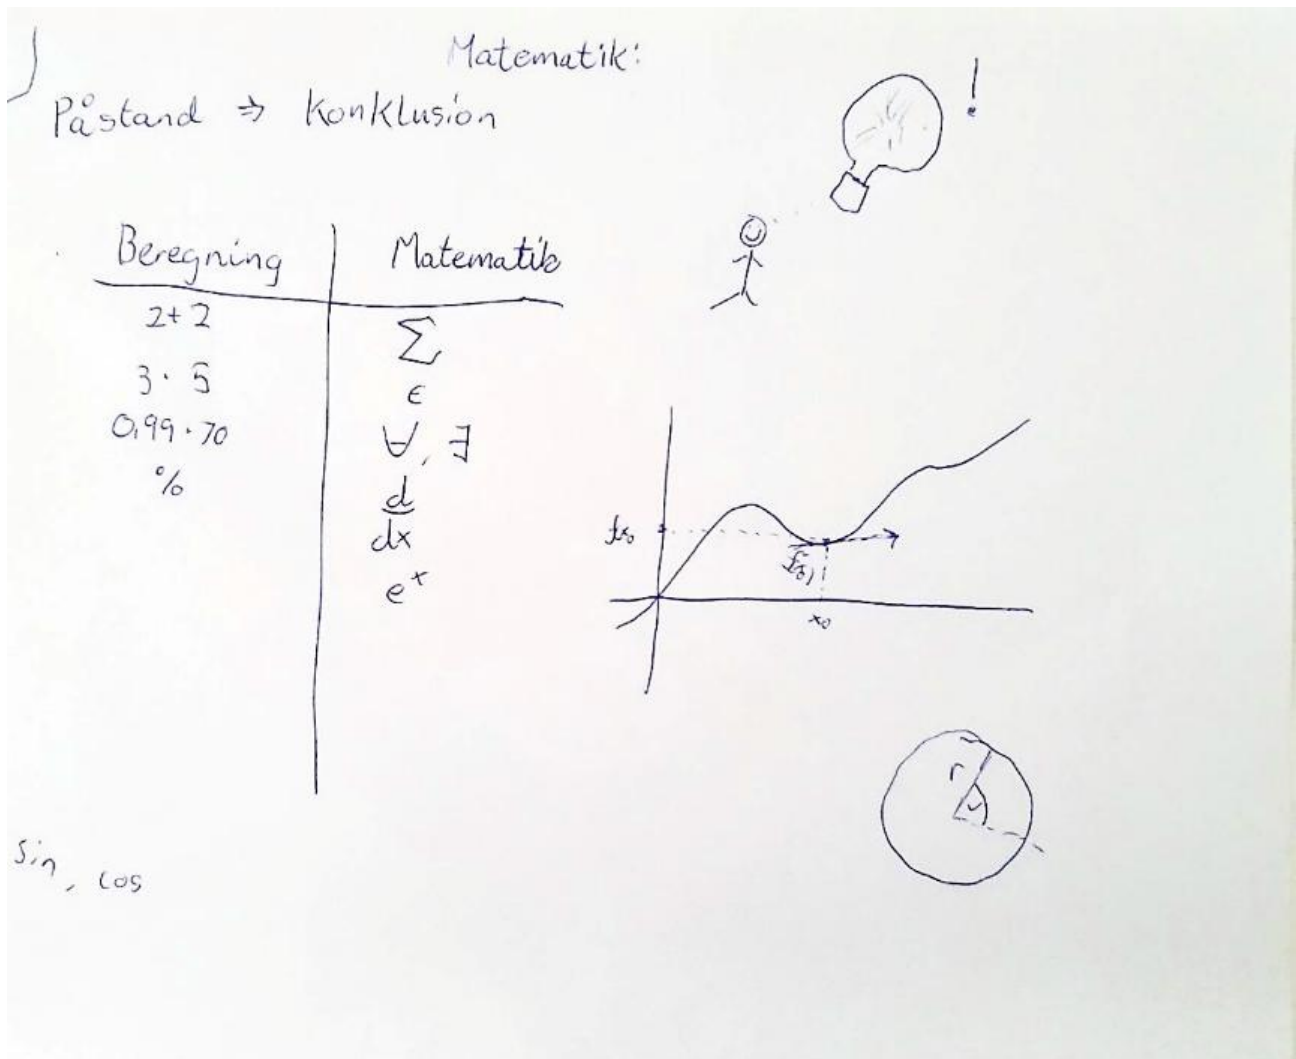 Matematik:
Påstand ⇒ Konklusion
!
Beregning | Matematik
2+2
Σ
3 · 5
ϵ
0,99 · 70
∀, ∃
%
d
dx
eˣ
x₀
r
v
sin, cos